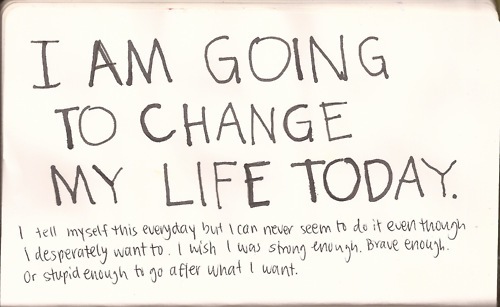 I AM GOING
TO CHANGE
MY LIFE TODAY.
I tell myself this everyday but I can never seem to do it even though
I desperately want to. I wish I was strong enough. Brave enough.
Or stupid enough to go after what I want.